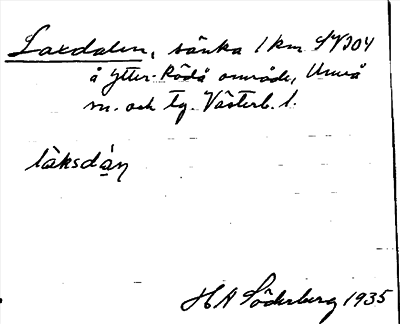 Laxdalen, sänka 1 km SV 304
å Ytter-Rödå område, Umeå
sn. och tg. Västerb. l.
làksdán
H A Söderberg 1935